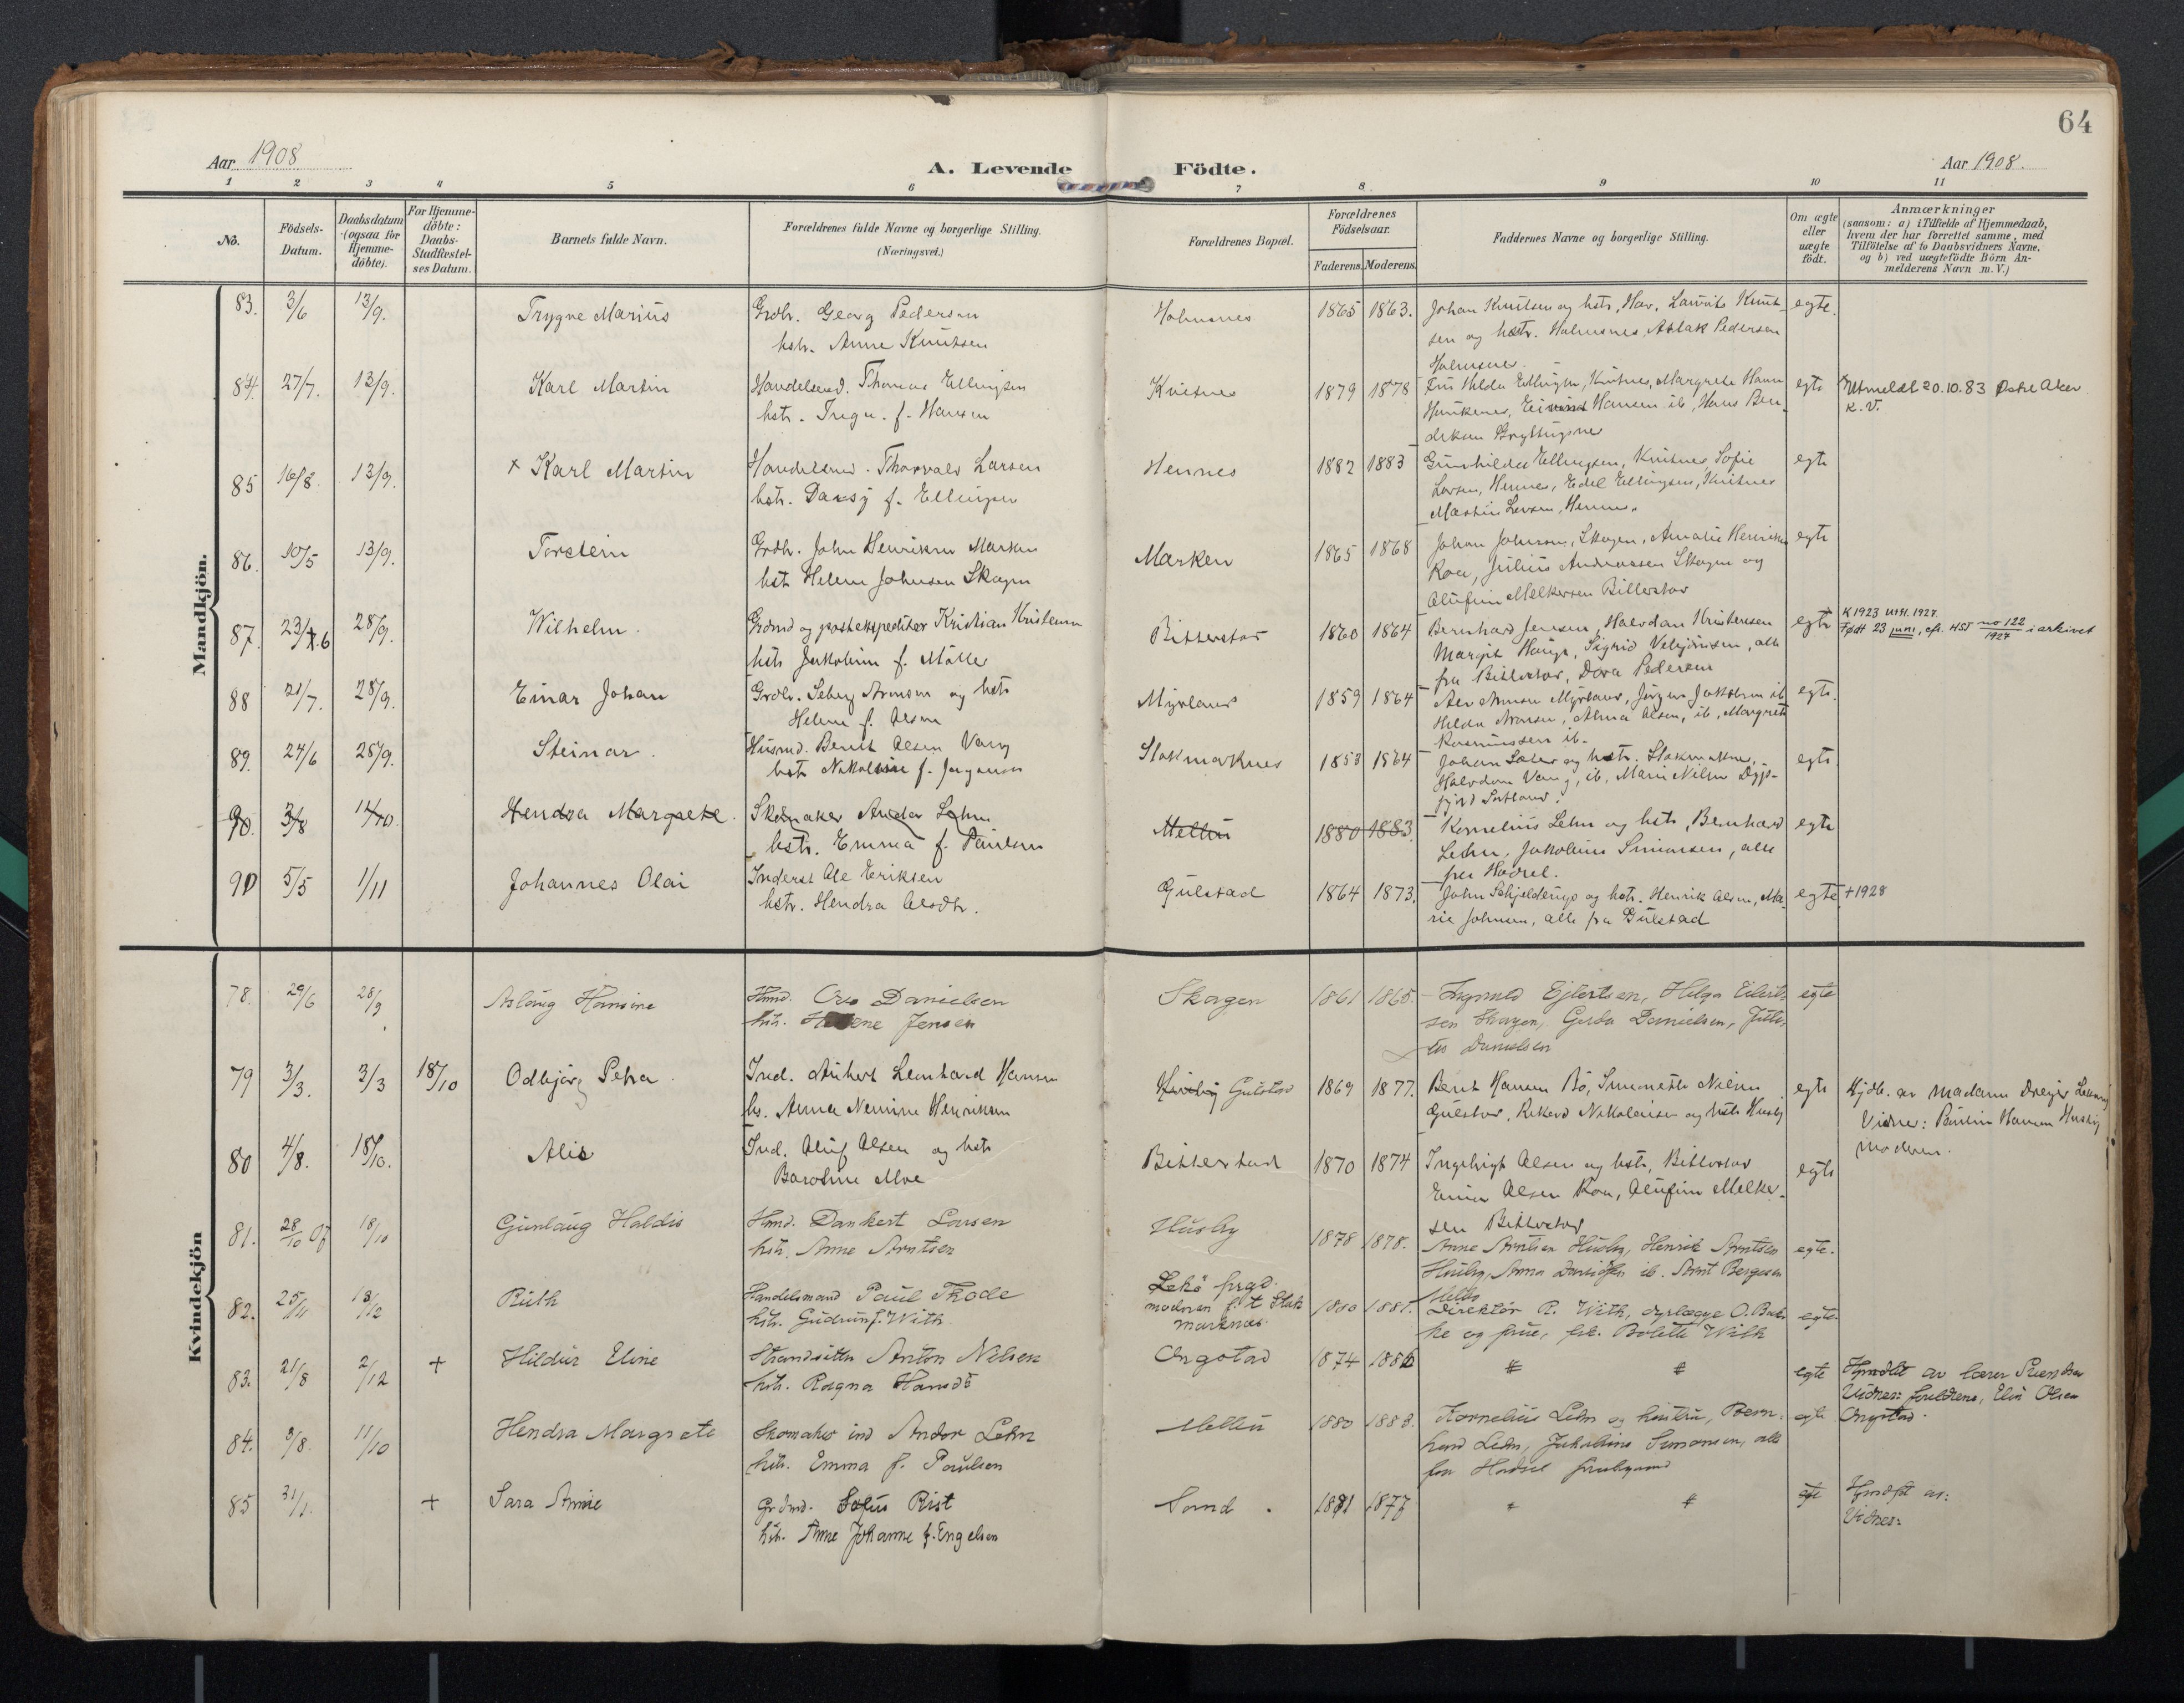 64
Aar 1908
A. Levende Födte.
Aar 1908.
1 2 3 4 5 6 7 8 9 10 11
No.
Födsels-
Datum.
Daabsdatum
(ogsaa for
Hjemme-
döbte).
For Hjemme-
döbte:
Daabs-
Stadfæstel-
ses Datum.
Barnets fulde Navn.
Forældrenes fulde Navne og borgerlige Stilling.
(Næringsvei.)
Forældrenes Bopæl.
Forældrenes
Födselsaar.
Faderens. Moderens.
Faddernes Navne og borgerlige Stilling.
Om ægte
eller
uægte
födt.
Anmærkninger
(saasom: a) i Tilfælde af Hjemmedaab,
hvem der har forrettet samme, med
Tilföielse af to Daabsvidners Navne,
og b) ved uægtefödte Börn An-
melderens Navn m. V.)
Mandkjön.
83. 3/6 13/9. Trygve Marius
Grdbr. Georg Pedersen
hstr. Anne Knutsen
Holmsnes 1865 1863.
Johan Knutsen og hstr, Hav, Laurits Knut-
sen og hstr. Holmsnes, Aslak Pedersen
Holmsnes
egte.
84. 27/7. 13/9. Karl Martin
Handelsmd. Thomas Ellingsen
hstr. f. Hansen
Kvitnes 1879 1878
Hilda Ellingsen, Kvitnes, Margrete
Hansen ib, Hans Ben-
diksen
egte
Utmeldt 20.10.83 Østre Aker
K. V.
85 16/8. 13/9. × Karl Martin
Handelsmd. Thorvald Larsen
hstr. Dagny f. Ellingsen
Hennes 1882 1883
Gunhilda Ellingsen, Kvitnes, Sofie
Larsen, Hennes, Edel Ellingsen, Kvitnes
Martin Larsen, Hennes
egte
86. 10/5 13/9. Torstein
Grdbr. John Henriksen Marken
hstr Helene Johnsen Skagen
Marken 1865 1868
Johan Johnsen, Skagen, Amalie Henriksen
Roa, Julius Andreassen Skagen og
Olufine Melkersen Bitterstad
egte
87. 23/7.6 28/9. Wilhelm.
Grdmd og postekspeditør Kristian Kristensen
hstr Jakobine f. Möller
Bitterstad 1860 1864
Bernhard Jensen, Halvdan Kristensen
Margit Hauge, Sigrid, alle
fra Bitterstad, Dora Pedersen
egte
K 1923 Utfl. 1927.
Født 23 juni, cfr. HST no 122/1927 i arkivet
88 21/7. 28/9. Einar Johan
Grdbr. Seberg Aronsen og hstr
Helene f. Olsen
Myrland 1859 1864
Aronsen Myrland, Jörgen Jakobsen ib
Hilda Aronsen, Alma Olsen, ib, Margrete
Rasmussen ib.
egte.
89. 24/6 28/9. Steinar.
Husmd. Bernt Olsen Vang
hstr Nikoline f. Jörgensen
Stokmarknes 1853 1864
Johan Sæter og hstr. Stokmarknes,
Halvdan Vang, ib, Marie Nilsen Dyp-
fjord Sortland.
egte
90. 3/8 11/10. Hendra Margrete.
Skomaker Andor Lehn
hstr. Emma f. Paulsen
Melbu 1880 1883
Kornelius Lehn og hstr, Bernhard
Lehn, Jakobine Simonsen, alle
fra Hadsel.
egte
90 5/5 1/11 Johannes Olai
Inderst Ole Eriksen
hstr. Hendra Olsdtr.
Gulstad 1864 1873.
John Schjelderup og hstr. Henrik Olsen, Ma-
rie Johnsen, alle fra Gulstad
egte +1928
Kvindekjön
78. 29/6 28/9 Aslaug Hansine
Hmd. Ove Danielsen
hstr. Helene Jensen
Skagen 1861 1865.
Ingvald Ejlertsen, Helga Eilert-
sen Skagen, Gerda Danielsen,
Danielsen
egte
79 3/3. 3/3 18/10 Odbjörg Petra.
Ind. Lenhard Hansen
hs. Anna Nemine Henriksen
Husby Gulstad 1869 1877.
Bernt Hansen Bö, Simonette Nilsen
Gulstad, Rikard Nikolaisen og hstr Husby
egte
Hjdb. av Madam Dreyer
Vidner: Pauline Hansen Husby
Moderen.
80 4/8. 18/10. Alis
Ind. Oluf Olsen og hstr
Baroline Moe
Bitterstad 1870 1874
Ingebrigt Olsen og hstr, Bitterstad
Olsen Roa, Olufine Melker-
sen Bitterstad
egte
81. 28/10 07 18/10 Gunlaug Haldis
Hmd. Dankert Larsen
hstr. Anne Arntsen
Husby 1878 1878.
Anne Arntsen Husby, Henrik Arntsen
Husby, Anna Davidsen ib. Arnt Bergesen
Melbo
egte.
82. 25/11 13/12 Ruth
Handelsmand Paul Thode
hstr. Gudrun f. With.
Lekö prgd.
moderen f. t Stok
marknes. 1880 1881.
Direktör R. With, dyrlæge O. Bak-
ke og frue, frk. Bolette With
egte.
83. 21/8 2/12 + Hildur Eline
Strandsitter Anton Nilsen
hstr. Ragna Hansdt
Ongstad 1874 1886
" "
egte
Hjmdbt av lærer
Vidner: forældrene, Elen Olsen
Ongstad.
84. 3/8. 11/10 Hendra Margrete
Skomaker ind Andor Lehn
hstr. Emma f. Paulsen
Melbu 1880 1883.
Kornelius Lehn og hustru, Bern-
hard Lehn, Jakobine Simonsen, alle
fra Hadsel
egte
85 31/1. + Sara Anne
Grdmd. Sofus Rist
hstr. Anne Johanne f. Engelsen
Sand. 1881 1877
" "
egte
Hjmdbt av:
Vidner: